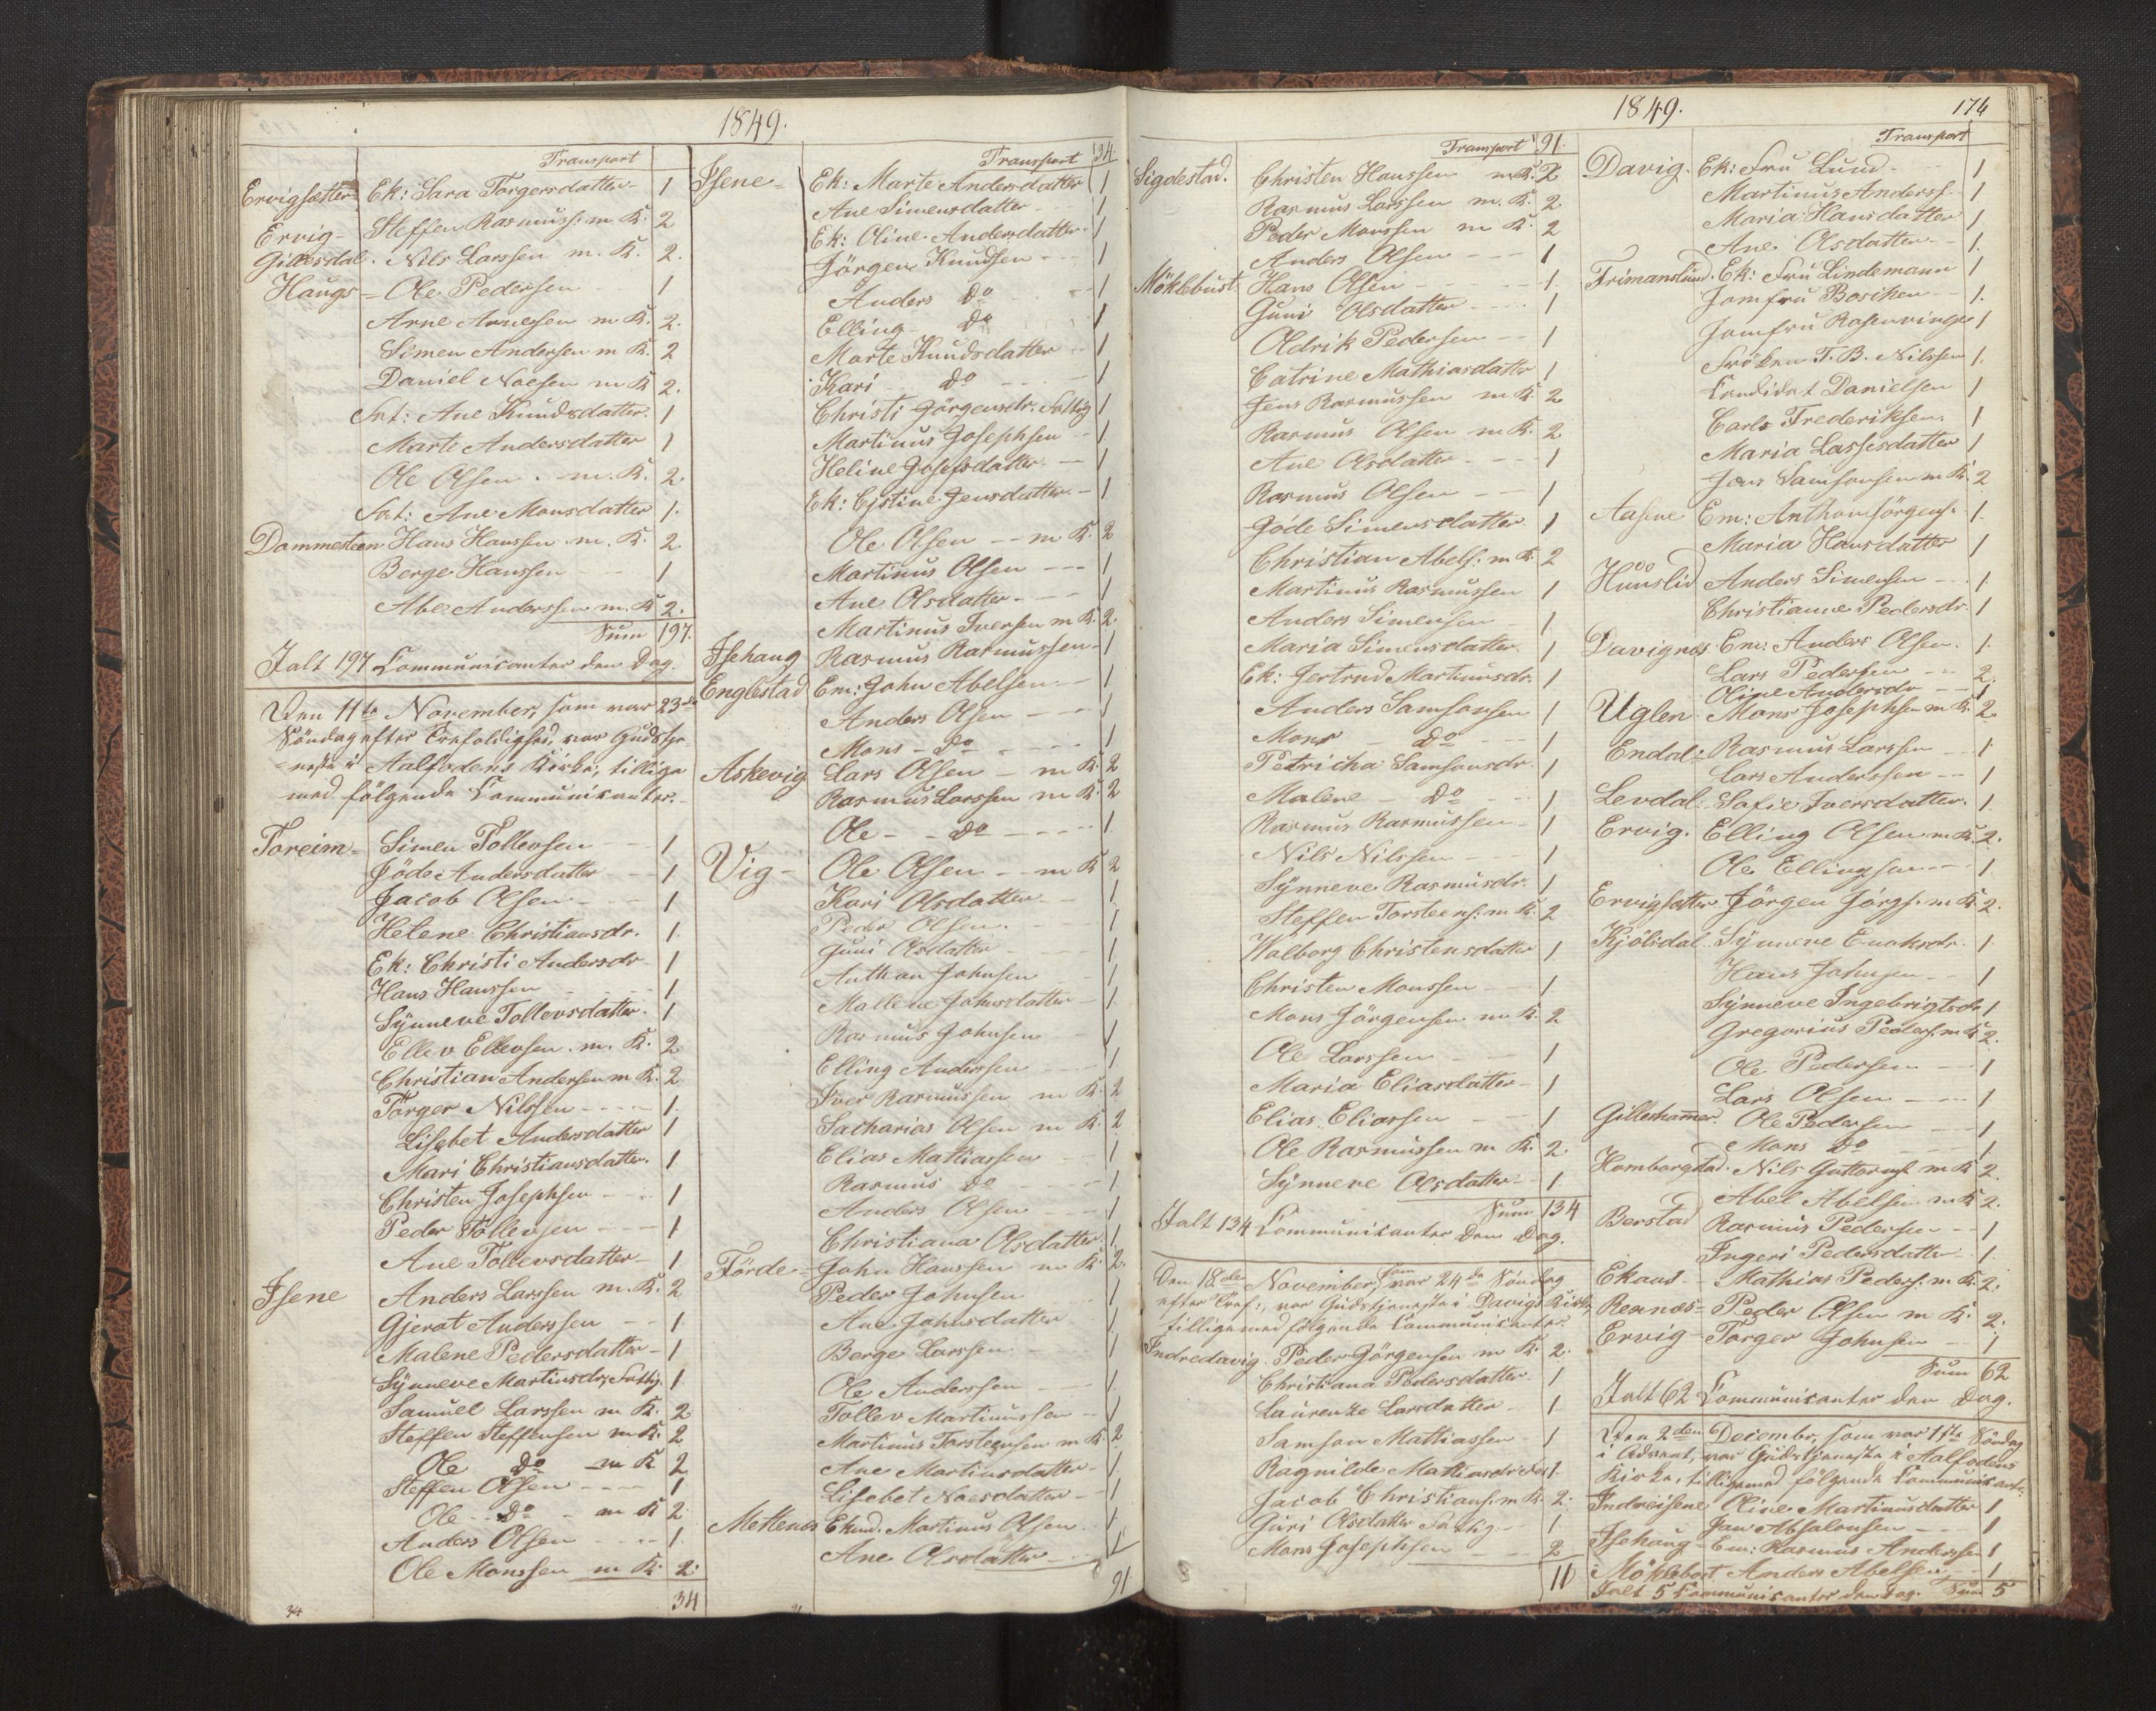 1849.
Transport
Ervigsætter Ek: Sara Torgersdatter 1
Ervig Steffen Rasmuss: m K. 2
Gilesdal. Nils Larssen m. K. 2.
Haugs Ole Pedersen 1
Arne Arnesen m K. 2.
Simen Andersen m K. 2
Daniel Noesen m K 2.
Fat: Ane Knudsdatter. 1
Marte Andersdatter 1
Ole Olsen m. K. 2
Fat: Ane Monsdatter 1.
Dammesteen Hans Hanssen m. K. 2
Berge Hanssen 1
Abel Anderssen m. K 2.
Sum 197.
Ialt 197 Communicanter den Dag.
Den 11te November, som var 23de
Söndag efter Trefoldighed, var Gudstje-
neste i Aalfodens Kirke, tillige
med følgende Communicanter.
Foreim Simen Tollevsen 1
Jöde Andersdatter 1
Jacob Olsen 1
Helene Christiansdr. 1.
Ek: Christi Andersdr 1
Hans Hanssen 1
Synneve Tollevsdatter. 1
Ellev Ellevsen m. K. 2
Christian Andersen m K. 2
Torger Nilssen 1.
Lisebet Andersdatter 1
Mari Christiansdatter. 1
Christen Josephsen 1
Peder Tollevsen 1
Ane Tollevsdatter 1
Isene Anders Larssen m. K. 2
Gjerat Anderssen 1
Malene Pedersdatter 1
Synneve Martinsdr, Fattig. 1
Samuel Larssen m K. 2
Steffen Steffensen m K. 2
Ole Do m K 2
Steffen Olsen 1
Ole Do m K 2
Anders Olsen 1
Ole Monssen m K. 2.
34
Transport 34.
Isene Ek: Marte Andersdatter 1
Ane Simensdatter 1
Ek: Oline Andersdatter 1
Jörgen Knudsen 1
Anders Do 1
Elling Do 1
Marte Knudsdatter 1
Kari Do 1
Christi Jörgensdr. Fattig 1
Martinus Josephsen 1
Heline Josefsdatter 1
Ek: Cistine Jensdatter 1
Ole Olsen m K. 2
Martinus Olsen 1
Ane Olsdatter 1
Martinus Iversen m K. 2.
Isehaug Rasmus Rasmussen 1
Englestad Em: John Abelsen 1
Anders Olsen 1
Mons Do 1
Askevig Lars Olsen m K 2
Rasmus Larssen m K 2
Ole Do 1
Vig Ole Olsen m K 2
Kari Olsdatter 1
Peder Olsen 1
Guni Olsdatter 1
Anthon Johnsen 1
Mallene Johnsdatter 1
Rasmus Johnsen 1
Elling Anderssen 1
Iver Rasmussen m K. 2
Sacharias Olsen m K. 2
Elias Mathiassen 1
Rasmus Do 1
Anders Olsen 1
Christiana Olsdatter 1.
Förde John Hanssen m K 2.
Peder Johnsen 1
Ane Johnsdatter 1
Berge Larssen 1
Ole Anderssen 1
Tollev Martinussen 1
Martinus Torsteensen m K 2
Ane Martinsdatter 1
Lisebet Noesdatter 1
Mettenes Ekmd. Martinus Olsen 1
Ane Olsdatter 1
91
1849. 174
Transport 91.
Sigdestad. Christen Hanssen m K. 2
Rasmus Larssen m. K. 2.
Peder Monssen m K. 2
Anders Olsen 1
Möklebust. Hans Olsen 1.
Guni Olsdatter 1
Oldrik Pedersen 1
Catrine Mathiasdatter 1
Jens Rasmussen m K. 2
Rasmus Olsen m K. 2
Ane Olsdatter 1
Rasmus Olsen 1
Jöde Simensdatter 1
Christian Abels: m K. 2
Martinus Rasmussen 1
Anders Simensen 1
Maria Simensdatter 1
Ek: Gertrud Martinusdr. 1
Anders Samsonsen 1
Mons Do 1
Petricha Samsonsdr. 1
Malene Do 1
Rasmus Rasmussen 1
Nils Nilssen 1
Synneve Rasmusdr. 1
Steffen Torsteens: m K. 2
Walborg Christensdatter 1
Christen Monssen 1
Mons Jörgensen m K. 2
Ole Larssen 1
Maria Eliasdatter 1
Elias Eliassen 1
Ole Rasmussen m K. 2.
Synneve Olsdatter 1
Sum 134
Ialt 134 Communicanter den Dag.
Den 18de November, som var 24de Söndag
efter Tref:, var Gudstjeneste i Davigs Kirke,
tilligemed følgende Communicanter.
Indredavig. Peder Jörgensen m K. 2.
Christiana Pedersdatter 1
Laurenze Larsdatter 1
Samson Mathiassen 1
Ragnilde Mathiasdr 1.
Jacob Christians: m K. 2.
Guri Olsdatter Fattig 1
Mons Josephsen 2
11
Transport
Davig. Ek: Fru Lund 1
Martinus Anderss. 1
Maria Hansdatter 1
Ane Olsdatter 1.
Frimanslund. Ek: Fru Lindemann 1
Jomfru Bosiken 1.
Jomfru Rosenvinge 1
Fröken T. B. Nilssen 1.
Candidat Danielsen 1
Carl Frederiksen. 1
Maria Lassesdatter 1
Jens Samsonsen m K. 2
Aasene Em: Anthon Jörgens. 1.
Maria Hansdatter 1
Huuslid Anders Simensen 1.
Christianne Pedersdr. 1
Davignæs Em: Anders Olsen. 1.
Lars Pedersen 2.
Oline Andersdr 1
Uglen Mons Josephsen m K. 2.
Endal Rasmus Larssen 1
Lars Anderssen 1
Levdal Sofie Iversdatter. 1.
Ervig. Elling Olsen m K. 2.
Ole Ellingsen 1
Ervigsætter Jörgen Jörgs. m K. 2.
Kjölsdal Synneve Enoksdr. 1.
Hans Johnsen 1
Synneve Ingebrigtsdr 1
Gregorius Peders. m K 2.
Ole Pedersen 1
Lars Olsen 1
Gilleshamer. Ole Pedersen 1
Mons Do 1
Homborgstad. Nils Guttorms. m K 2.
Abel Abelsen m K 2.
Berstad Rasmus Pedersen 1
Ingeri Pedersdatter 1.
Ekaas Mathias Peders. m K. 2.
Rennæs Peder Olsen m K. 2.
Ervig Torger Johnsen 1
Sum 62
Ialt 62 Communicanter den Dag.
Den 2den December, som var 1ste Söndag
i Advent, var Gudstjeneste i Aalfodens
Kirke, tilligemed følgende Communicant.
Indreisene Oline Martinusdatter 1
Jan Absalonsen 1
Isehaug Em: Rasmus Anderssen 1
Möklebost Anders Abelsen 1
Ialt 5 Communicanter den Dag. Sum 5